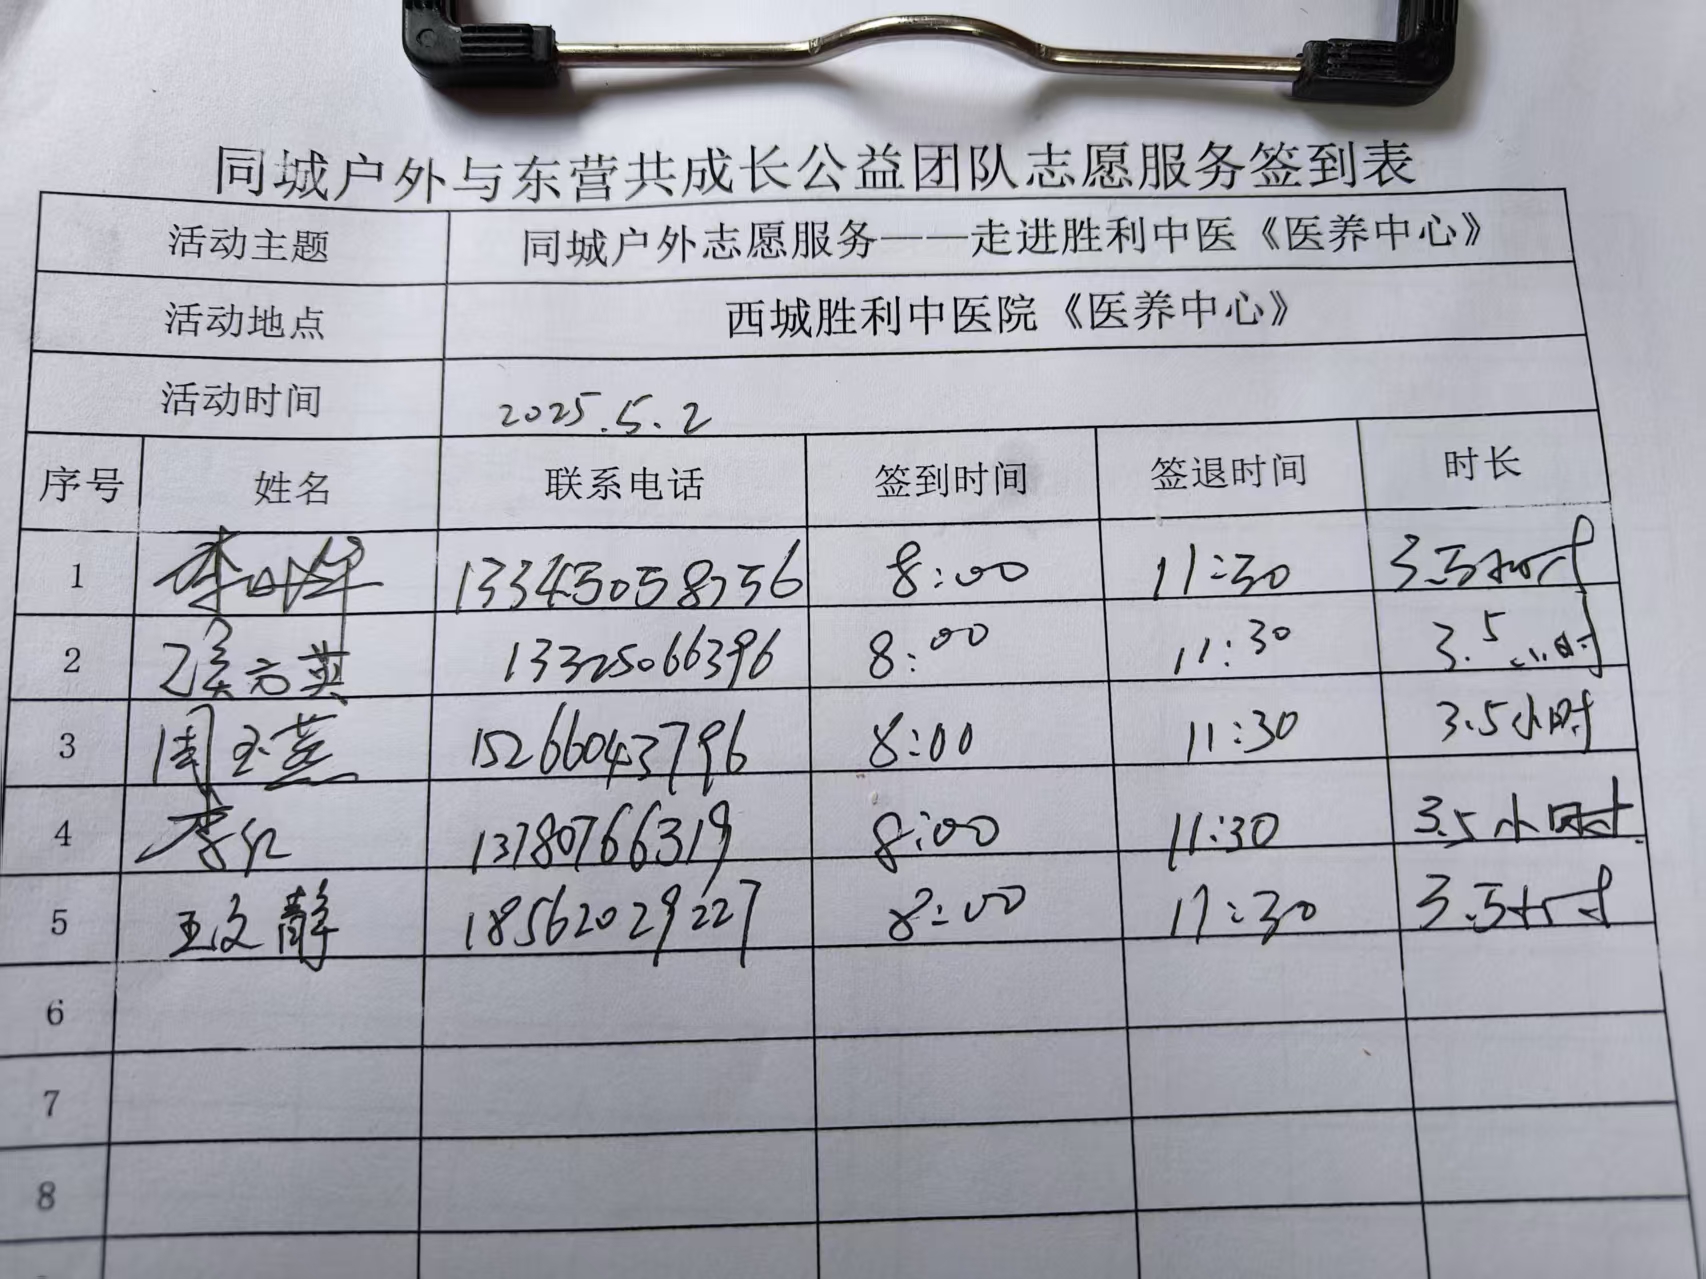 同城户外与东营共成长公益团队志愿服务签到表
活动主题 同城户外志愿服务——走进胜利中医《医养中心》
活动地点 西城胜利中医院《医养中心》
活动时间 2025.5.2
序号 姓名 联系电话 签到时间 签退时间 时长
1 8:00 11:30 3.5小时
2 侯方英 13325066396 8:00 11:30 3.5小时
3 周玉燕 15266043796 8:00 11:30 3.5小时
4 李红 13780766319 8:00 11:30 3.5小时
5 王文静 18562029227 8:00 11:30 3.5小时
6
7
8